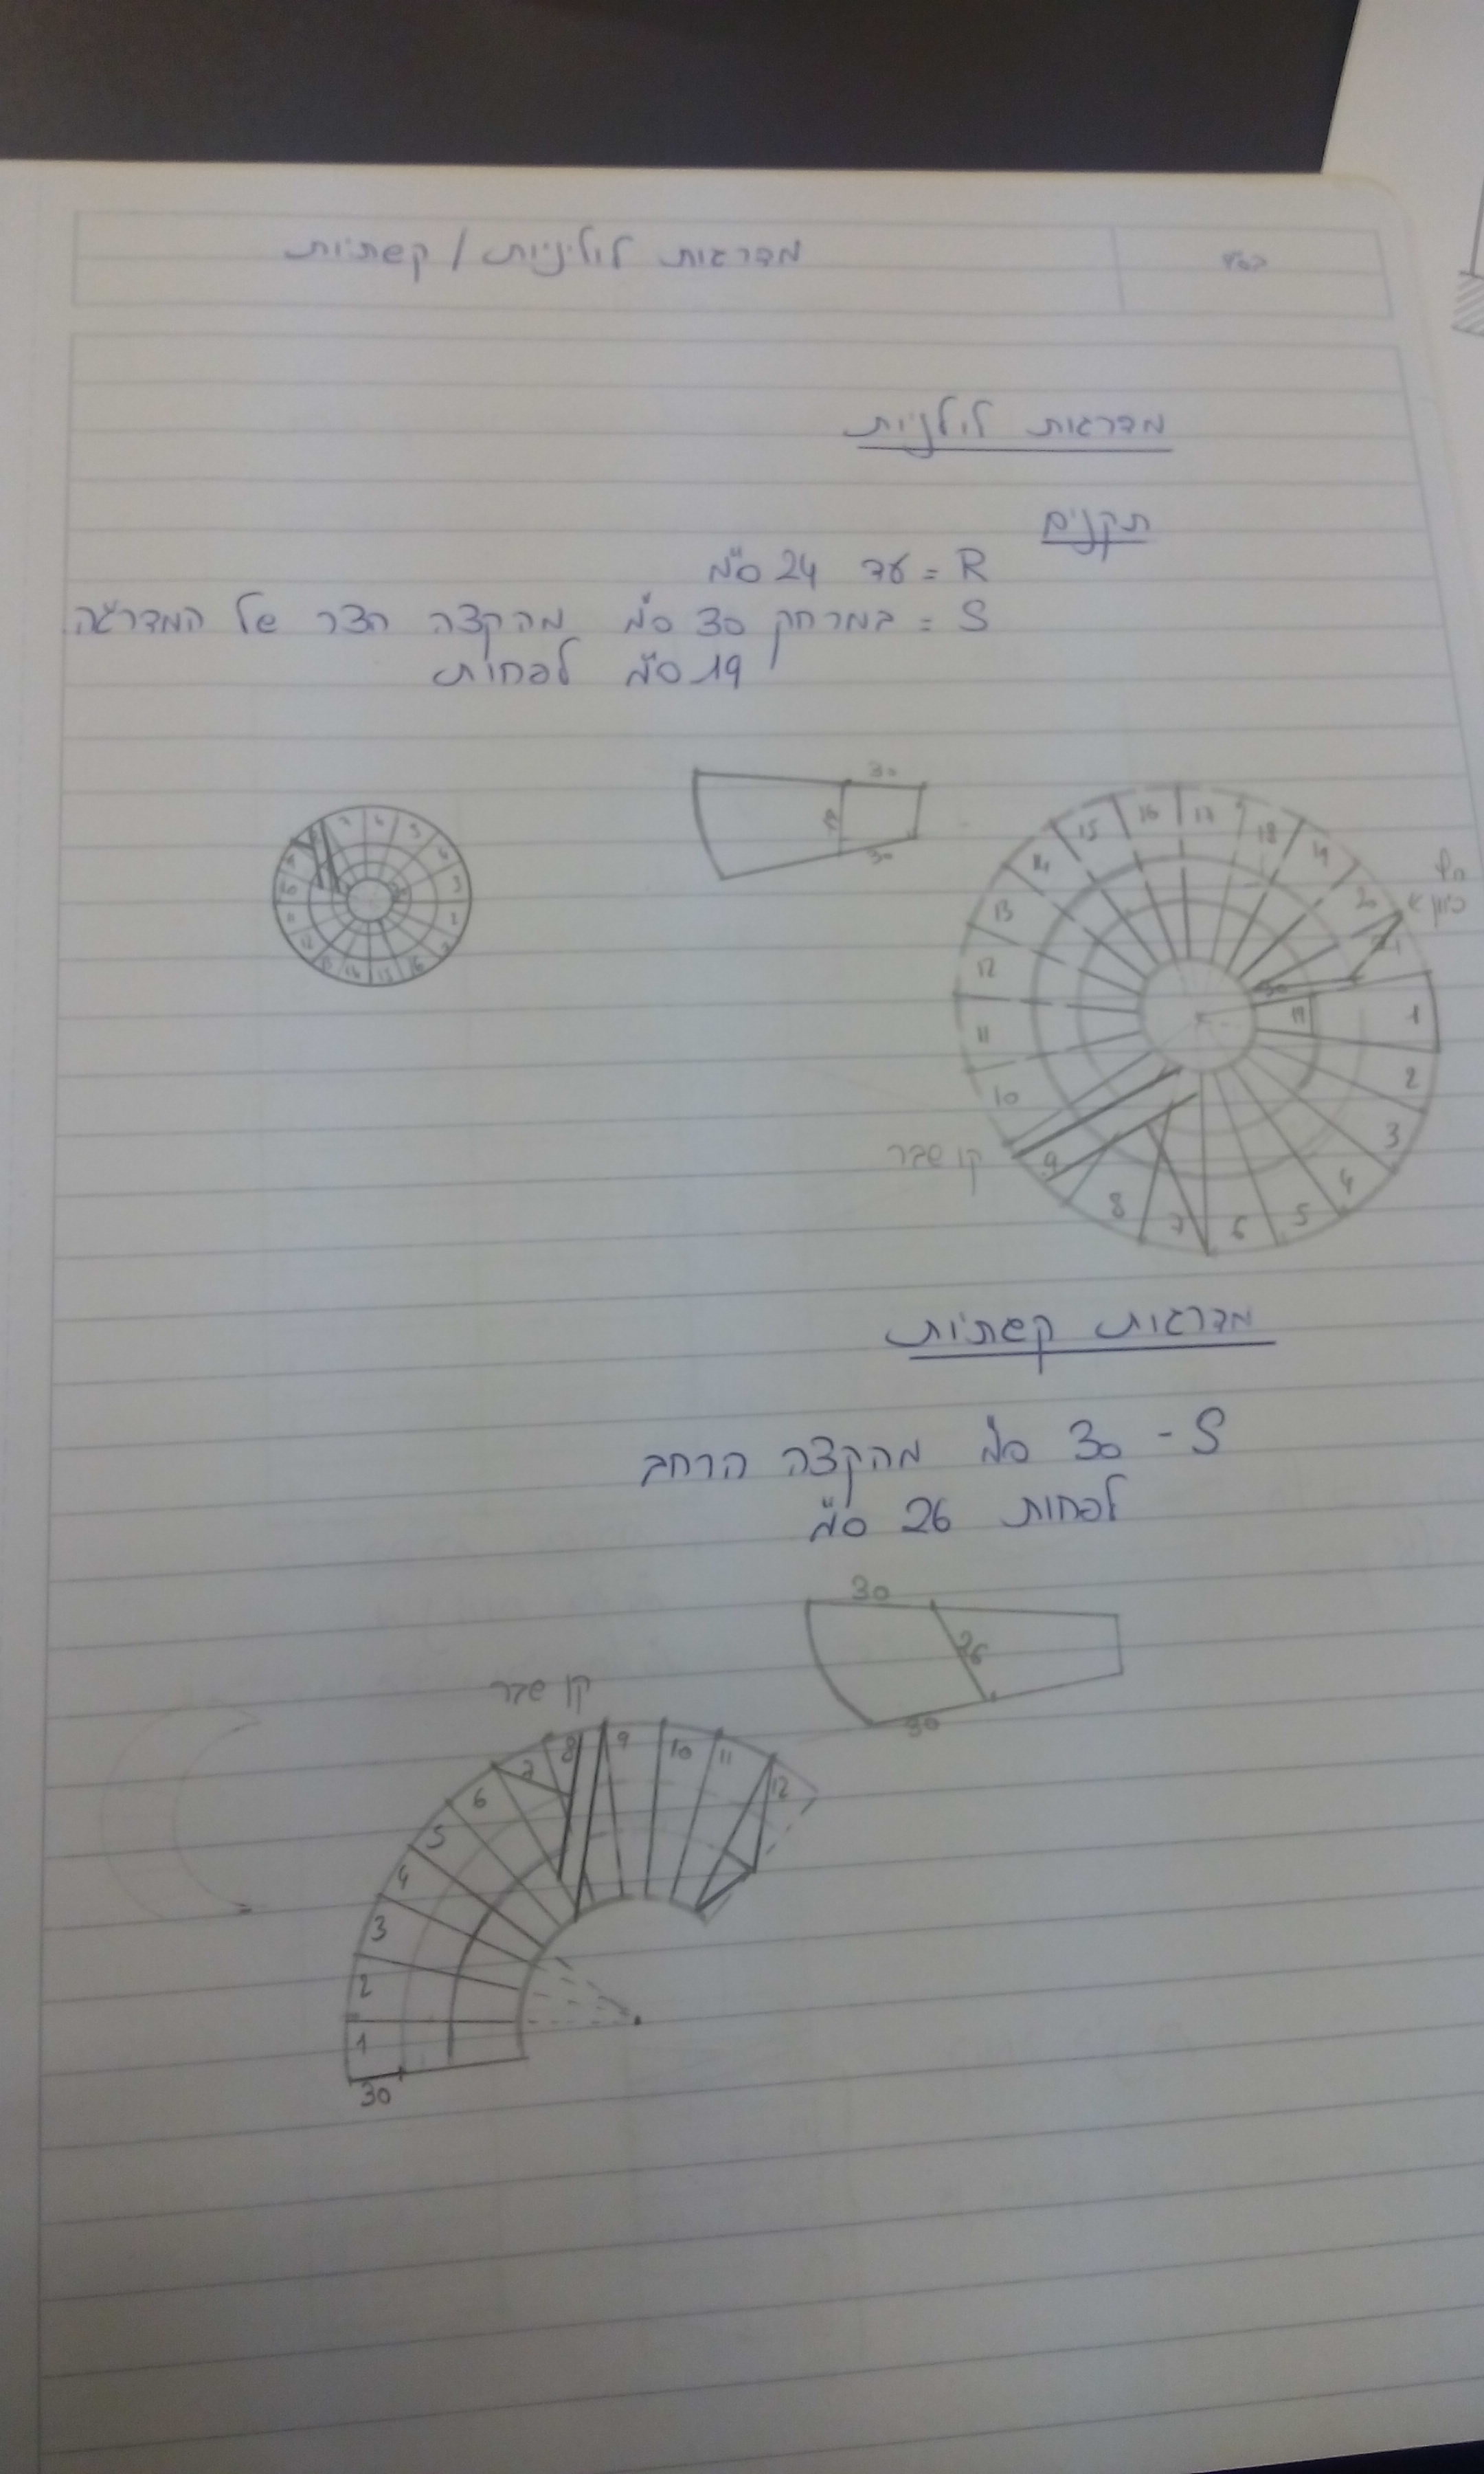 מדרגות לוליניות / קשתיות
מדרגות לולניות
תקנים
R = עד 24 ס"מ
S = במרחק 30 ס"מ מהקצה הצר של המדרגה
19 ס"מ לפחות
30
30
15 16 17 18 19
14 20
13
12 19 1
11 2
10 3
קו שבר 9 4
8 7 6 5
מדרגות קשתיות
S - 30 ס"מ מהקצה הרחב
לפחות 26 ס"מ
30
26
30
קו שבר
7 8 9 10 11
6 12
5
4
3
2
1
30